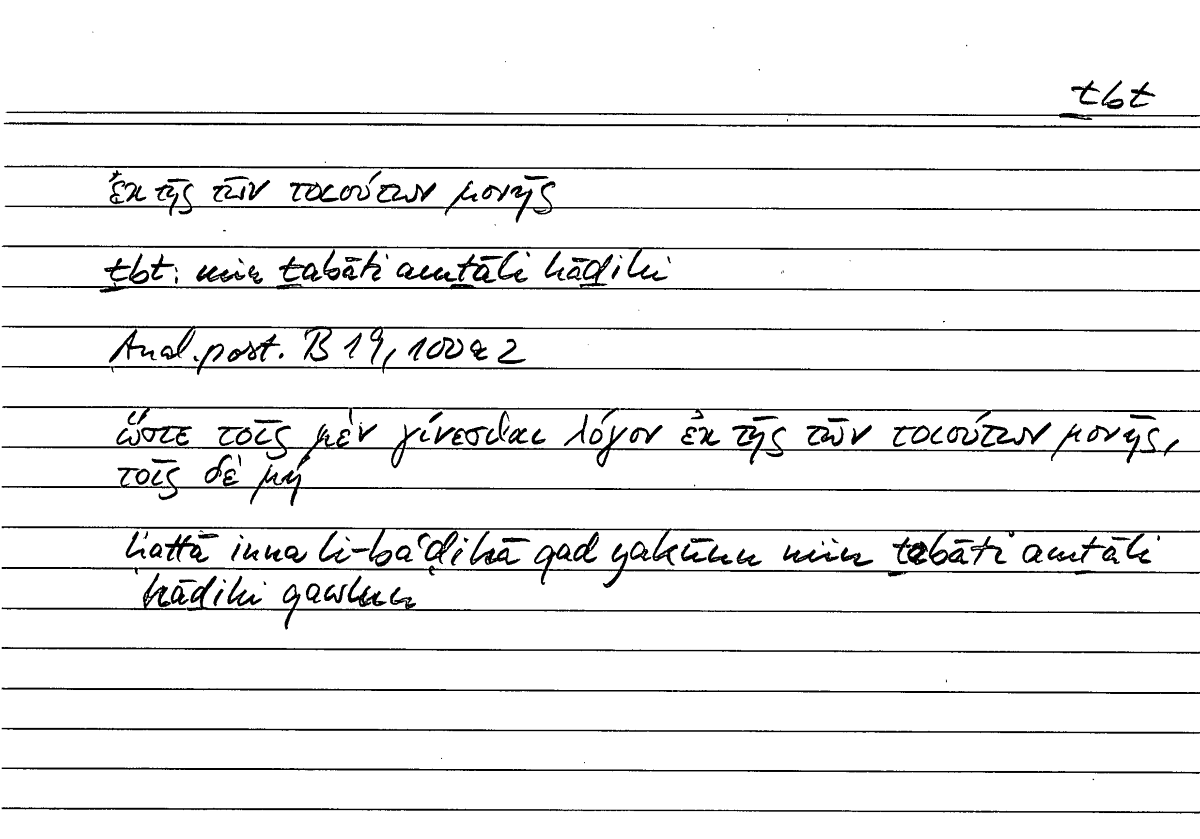 ṯbt
ἐκ τῆς τῶν τοιούτων μονῆς
ṯbt: min ṯabāti amṯāli hāḏihi
Anal. post. B 19, 100a2
ὥστε τοῖς μὲν γίνεσθαι λόγον ἐκ τῆς τῶν τοιούτων μονῆς,
τοῖς δὲ μή
ḥattā inna li-baʿḍihā qad yakūnu min ṯabāti amṯāli
hāḏihi qawlun